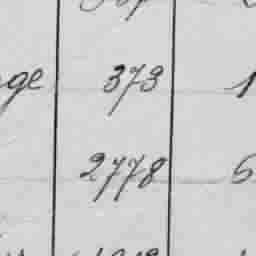 ge 373 1
2778 6